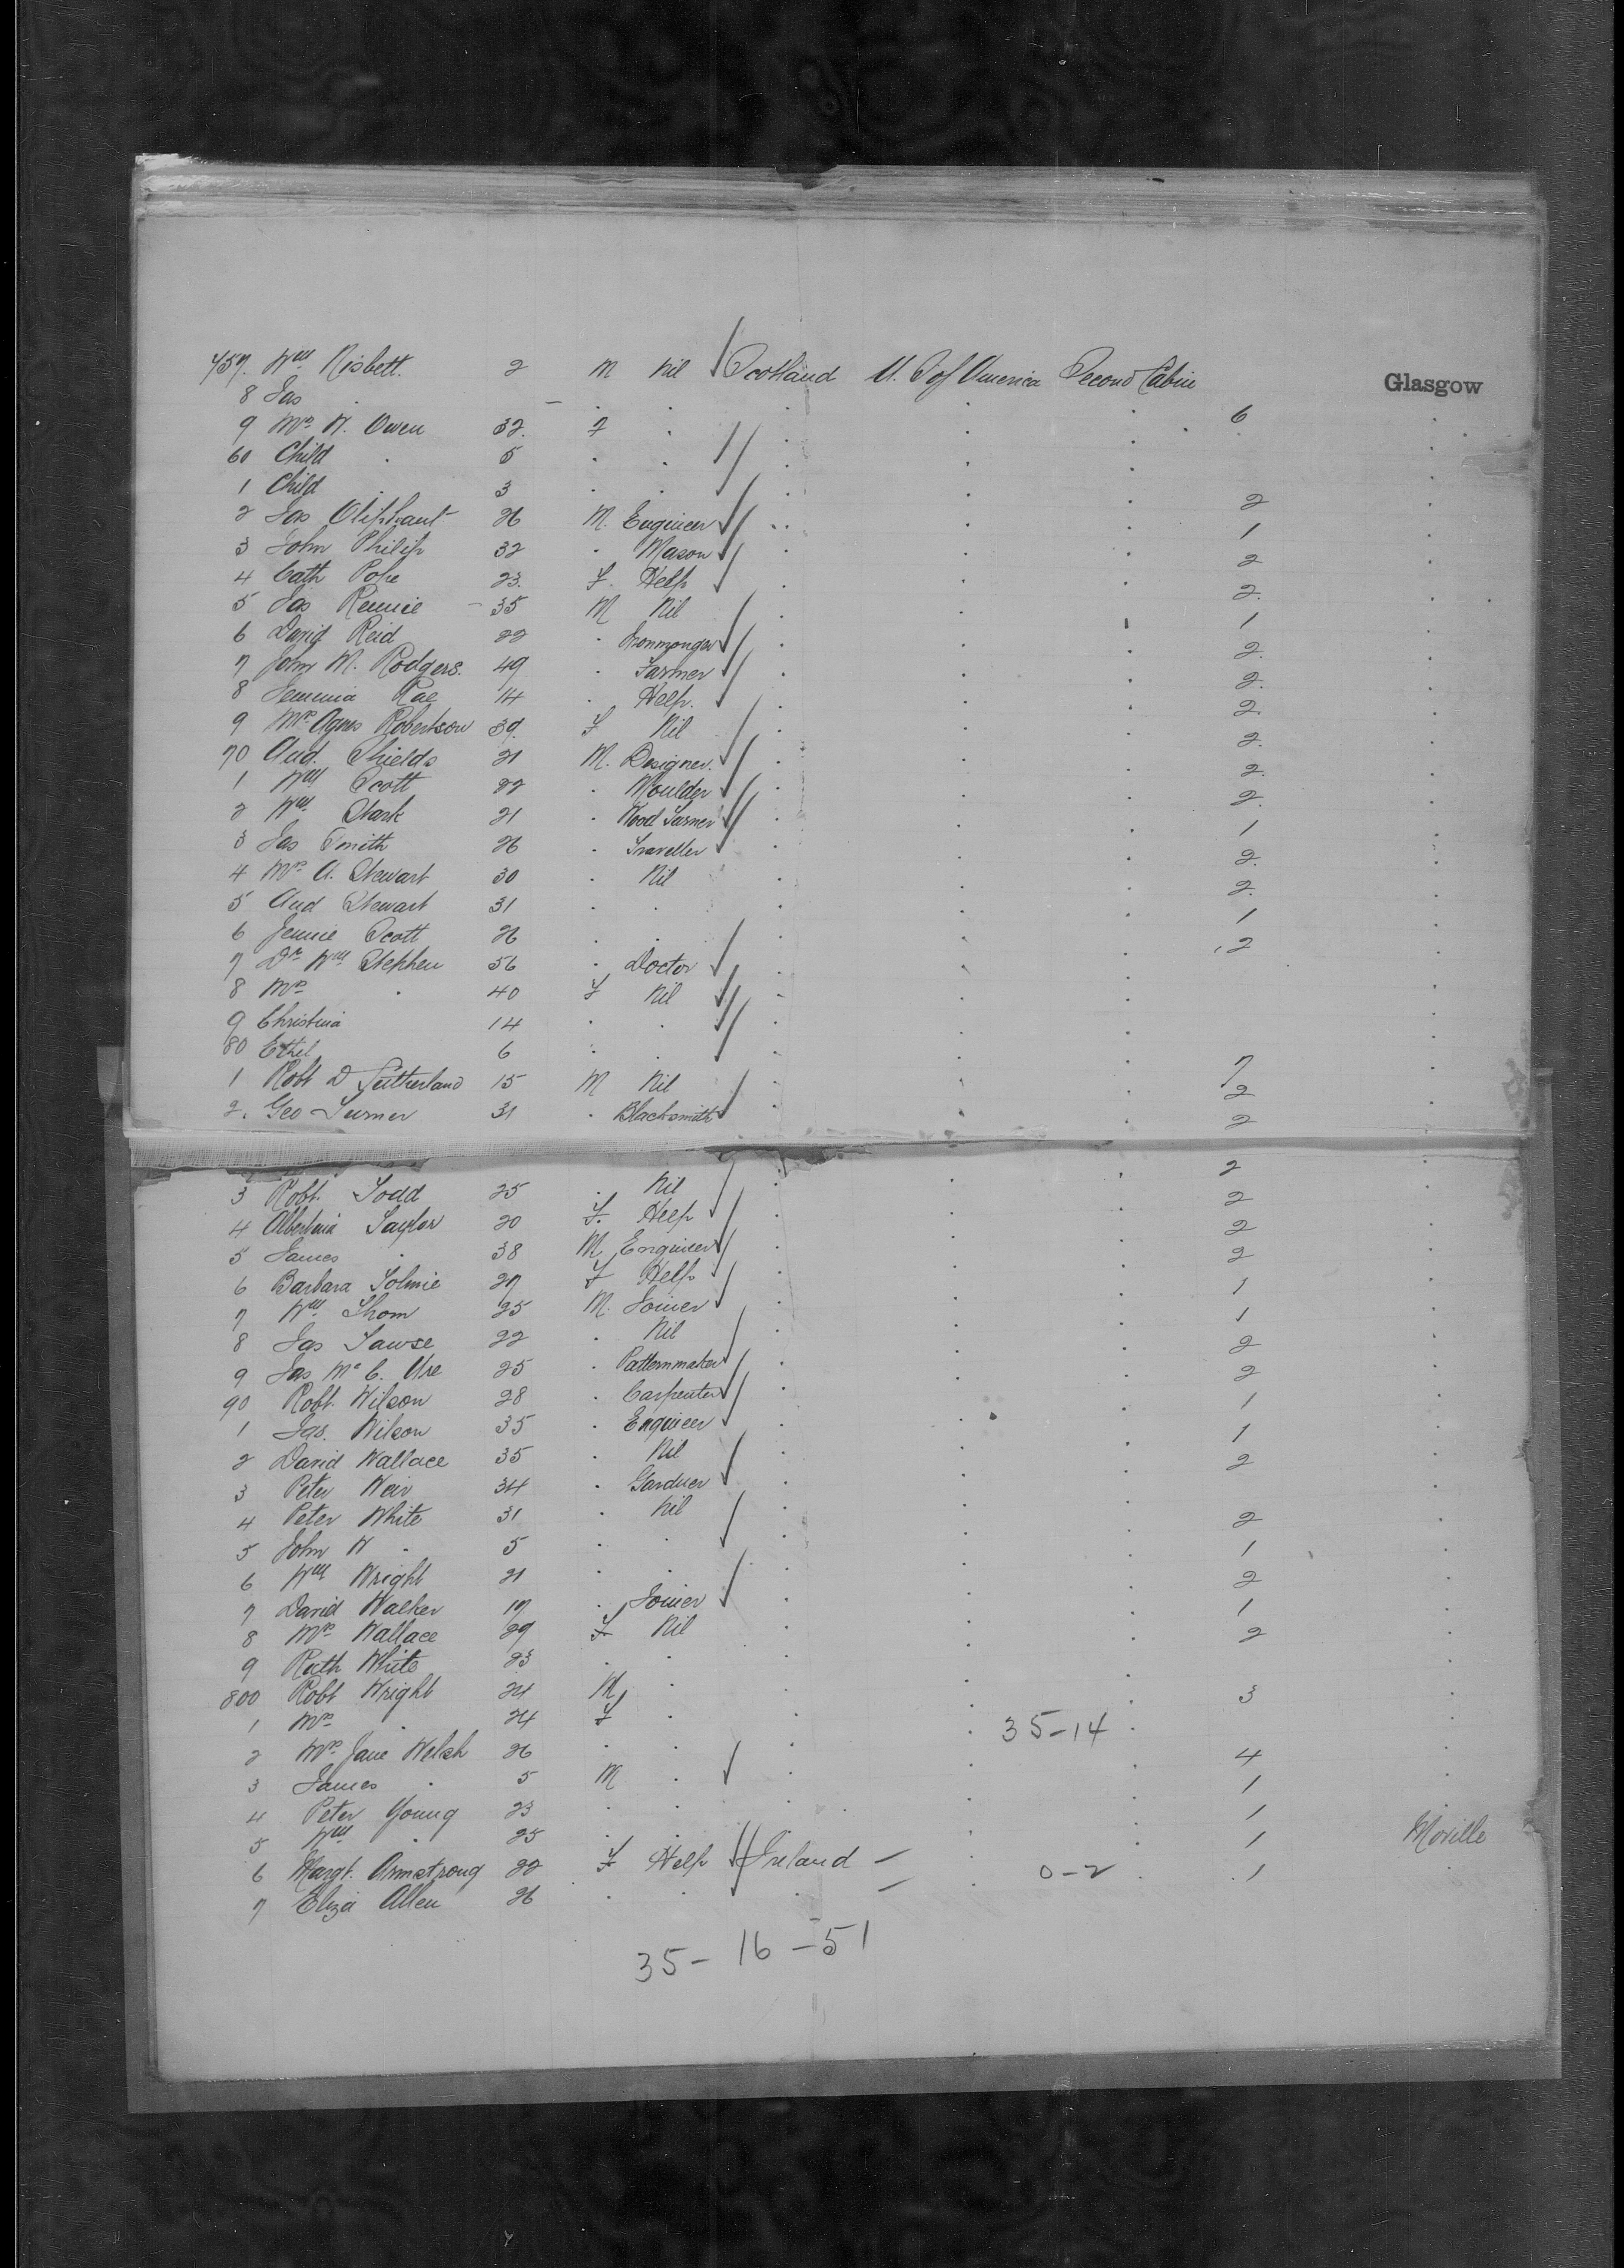 757. Wm Nisbett. 2 M Nil Scotland U. S of America Second Cabin Glasgow
8 Jas " — . . 6
9 Mrs W. Owen 32. F .
60 Child . 5 . .
1 Child . 3 . . 2
2 Jas Oliphant 26 M. Engineer 1
3 John Philip 32 . Mason 2
4 Cath Pope 23. F. Help 2.
5 Jas Rennie - 35 M Nil 1
6 David Reid 22 . Ironmonger 2.
7 John M. Rodgers. 49 . Farmer 2.
8 Jemima Rae 14 . Help. 2.
9 Mrs Agnes Robertson 39. F Nil 2.
70 And. Shields 21 M. Designer. 2.
1 Wm Scott 22 . Moulder 2.
2 Wm Stark 21 . Wood Turner 1
3 Jas Smith 26 . Traveller 2.
4 Mrs A. Stewart 30 . Nil 2.
5 And Stewart 31 . . 1
6 Jennie Scott 26 . . 2
7 Dr Wm Stephen 56 . Doctor
8 Mrs . 40 F Nil
9 Christina 14 . .
80 Ethel 6 . . 7
1 Robt D Sutherland 15 M Nil 2
2. Geo Turner 31 . Blacksmith 2
3 Robt. Todd 25 . Nil 2
4 Albertina Taylor 20 F. Help 2
5 James . 38 M. Engineer 2
6 Barbara Tolmie 27 F Help 2
7 Wm Thom 25 M. Joiner 1
8 Jas Tawse 22 . Nil 1
9 Jas Mc C. Ure 25 . Patternmaker 2
90 Robt. Wilson 28 . Carpenter 2
1 Jas. Wilson 35 . Engineer 1
2 David Wallace 35 . Nil 1
3 Peter Weir 34 . Gardner 2
4 Peter White 31 . Nil
5 John W . 5 . . 2
6 Wm Wright 21 . . 1
7 David Walker 17 . Joiner 2
8 Mrs Wallace 29 F Nil 1
9 Ruth White 23 . . 2
800 Robt Wright 24 M .
1 Mrs . 24 F . 35-14 3
2 Mrs Jane Welsh 26 . .
3 James . 5 M . 4
4 Peter Young 23 . . 1
5 Wm . 25 . . 1
6 Margt. Armstrong 22 F Help Ireland — 1 Moville
7 Eliza Allen 26 . . . — 0-2 1 .
35- 16 -51